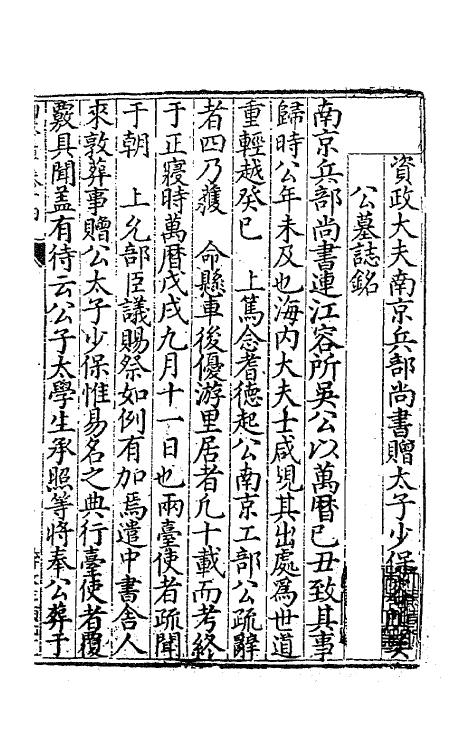 資政大夫南京兵部尚書贈太子少保容所吳
公墓誌銘
南京兵部尚書連江容所吳公以萬曆己丑致其事
歸時公年未及也海内大夫士咸覘其出處為世道
重輕越癸巳　上篤念耆德起公南京工部公疏辭
者四乃獲　命縣車後優游里居者凡十載而考終
于正寢時萬曆戊戌九月十一日也兩臺使者疏聞
于朝　上允部臣議賜祭如例有加焉遣中書舍人
來敦葬事贈公太子少保惟易名之典行臺使者覆
覈具聞盖有待云公子太學生承照等將奉公葬于